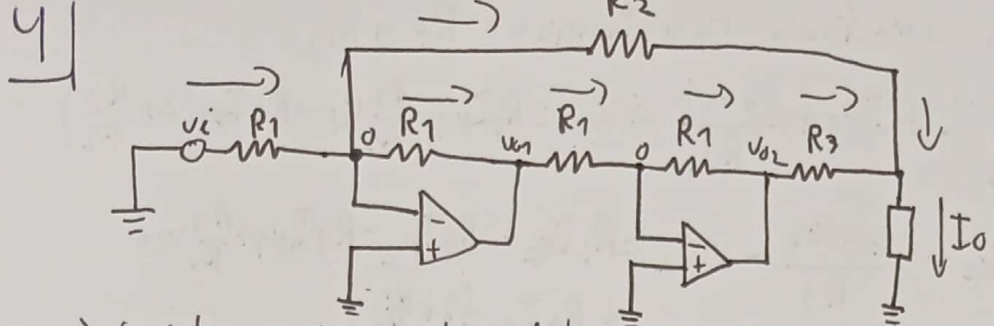 4
R2
vi R1 0 R1 vo1 R1 0 R1 vo2 R3
- +
- +
Io